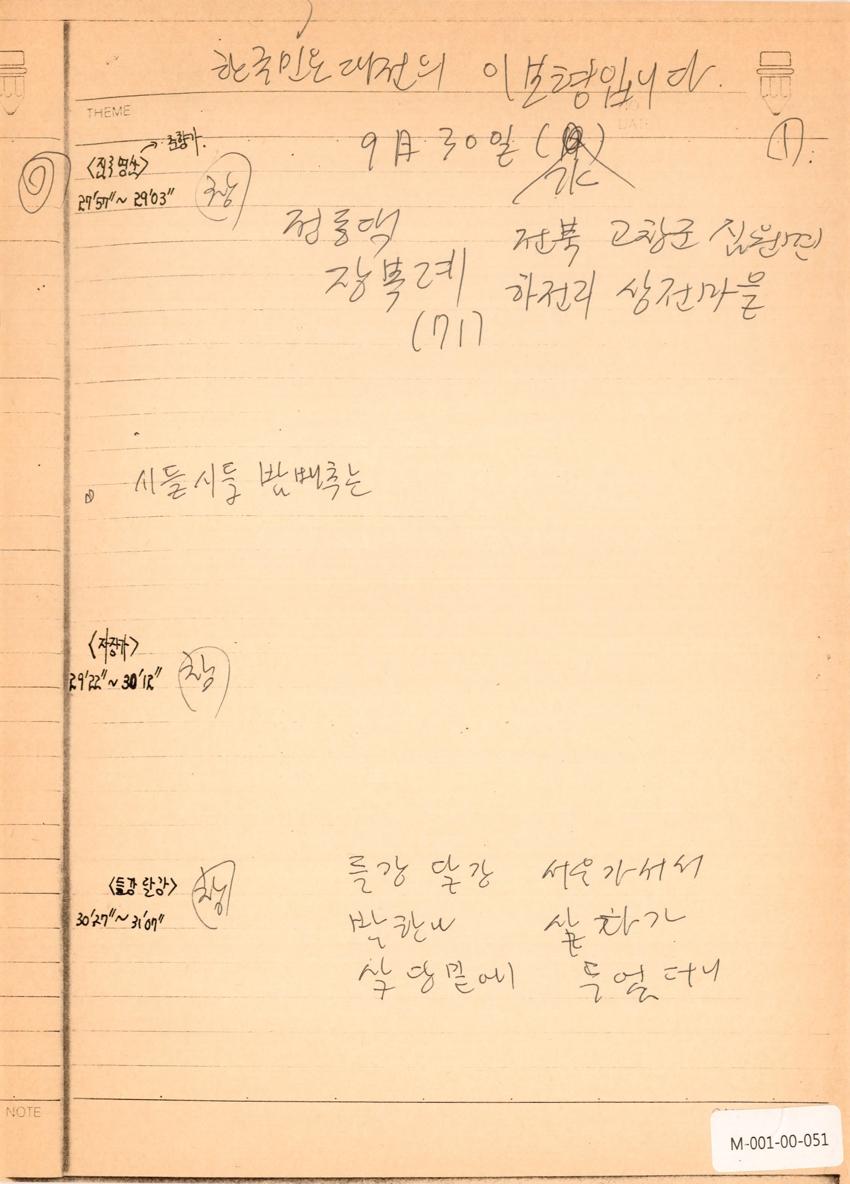 한국민요대전의 이보형입니다.
THEME
9月 30일 (水) ①
→ 춘향가.
27'57"~ 29'03" 창
정동댁 전북 고창군 심원면
장복례 하전리 상전마을
(71)
시들시들 밤배추는
<자장가>
29'22"~ 30'12" 창
<들강 달강> 창
30'27"~ 31'07"
들강 달강 서울가서서
밤한나 살차가
살강밑에 두었더니
NOTE
M-001-00-051